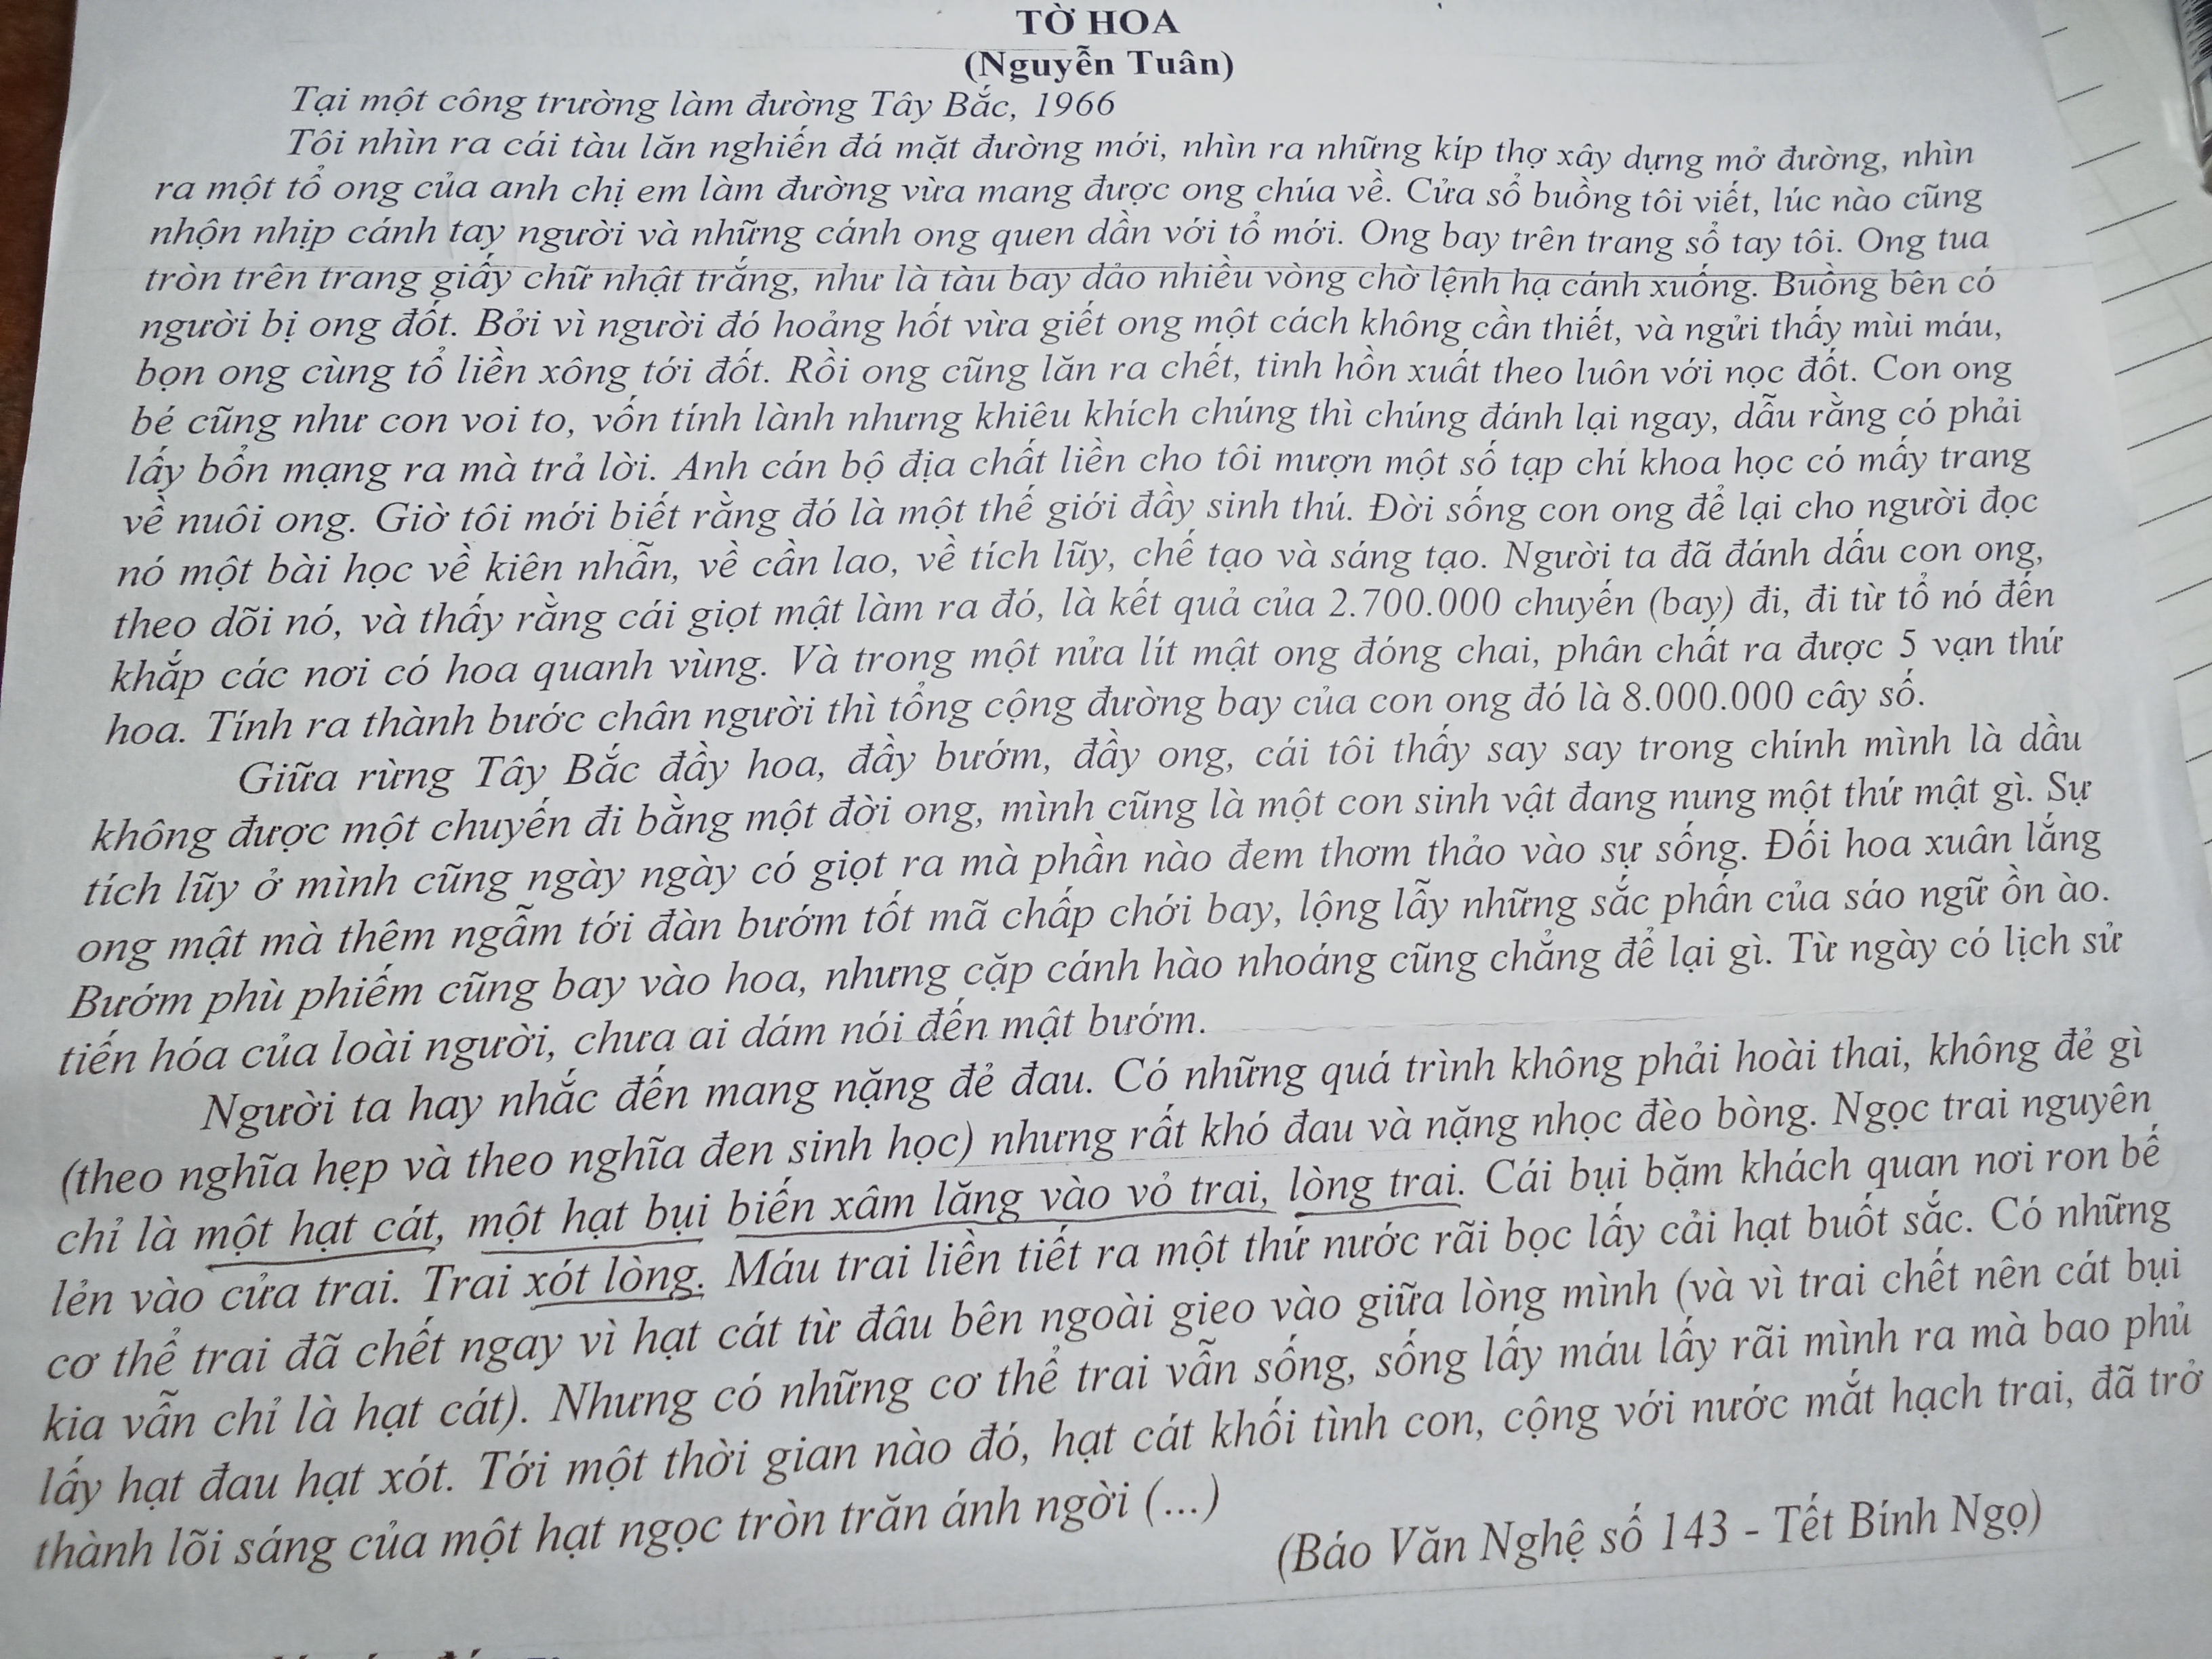 TỜ HOA
(Nguyễn Tuân)
Tại một công trường làm đường Tây Bắc, 1966
Tôi nhìn ra cái tàu lăn nghiến đá mặt đường mới, nhìn ra những kíp thợ xây dựng mở đường, nhìn
ra một tổ ong của anh chị em làm đường vừa mang được ong chúa về. Cửa sổ buồng tôi viết, lúc nào cũng
nhộn nhịp cánh tay người và những cánh ong quen dần với tổ mới. Ong bay trên trang sổ tay tôi. Ong tua
tròn trên trang giấy chữ nhật trắng, như là tàu bay đảo nhiều vòng chờ lệnh hạ cánh xuống. Buồng bên có
người bị ong đốt. Bởi vì người đó hoảng hốt vừa giết ong một cách không cần thiết, và ngửi thấy mùi máu,
bọn ong cùng tổ liền xông tới đốt. Rồi ong cũng lăn ra chết, tinh hồn xuất theo luôn với nọc đốt. Con ong
bé cũng như con voi to, vốn tính lành nhưng khiêu khích chúng thì chúng đánh lại ngay, dẫu rằng có phải
lấy bổn mạng ra mà trả lời. Anh cán bộ địa chất liền cho tôi mượn một số tạp chí khoa học có mấy trang
về nuôi ong. Giờ tôi mới biết rằng đó là một thế giới đầy sinh thú. Đời sống con ong để lại cho người đọc
nó một bài học về kiên nhẫn, về cần lao, về tích lũy, chế tạo và sáng tạo. Người ta đã đánh dấu con ong,
theo dõi nó, và thấy rằng cái giọt mật làm ra đó, là kết quả của 2.700.000 chuyến (bay) đi, đi từ tổ nó đến
khắp các nơi có hoa quanh vùng. Và trong một nửa lít mật ong đóng chai, phân chất ra được 5 vạn thứ
hoa. Tính ra thành bước chân người thì tổng cộng đường bay của con ong đó là 8.000.000 cây số.
Giữa rừng Tây Bắc đầy hoa, đầy bướm, đầy ong, cái tôi thấy say say trong chính mình là dầu
không được một chuyến đi bằng một đời ong, mình cũng là một con sinh vật đang nung một thứ mật gì. Sự
tích lũy ở mình cũng ngày ngày có giọt ra mà phần nào đem thơm thảo vào sự sống. Đối hoa xuân lắng
ong mật mà thêm ngẫm tới đàn bướm tốt mã chấp chới bay, lộng lẫy những sắc phấn của sáo ngữ ồn ào.
Bướm phù phiếm cũng bay vào hoa, nhưng cặp cánh hào nhoáng cũng chẳng để lại gì. Từ ngày có lịch sử
tiến hóa của loài người, chưa ai dám nói đến mật bướm.
Người ta hay nhắc đến mang nặng đẻ đau. Có những quá trình không phải hoài thai, không đẻ gì
(theo nghĩa hẹp và theo nghĩa đen sinh học) nhưng rất khó đau và nặng nhọc đèo bòng. Ngọc trai nguyên
chỉ là một hạt cát, một hạt bụi biến xâm lăng vào vỏ trai, lòng trai. Cái bụi bặm khách quan nơi ron bế
lẻn vào cửa trai. Trai xót lòng. Máu trai liền tiết ra một thứ nước rãi bọc lấy cải hạt buốt sắc. Có những
cơ thể trai đã chết ngay vì hạt cát từ đâu bên ngoài gieo vào giữa lòng mình (và vì trai chết nên cát bụi
kia vẫn chỉ là hạt cát). Nhưng có những cơ thể trai vẫn sống, sống lấy máu lấy rãi mình ra mà bao phủ
lấy hạt đau hạt xót. Tới một thời gian nào đó, hạt cát khối tình con, cộng với nước mắt hạch trai, đã trở
thành lõi sáng của một hạt ngọc tròn trăn ánh ngời (...)
(Báo Văn Nghệ số 143 - Tết Bính Ngọ)